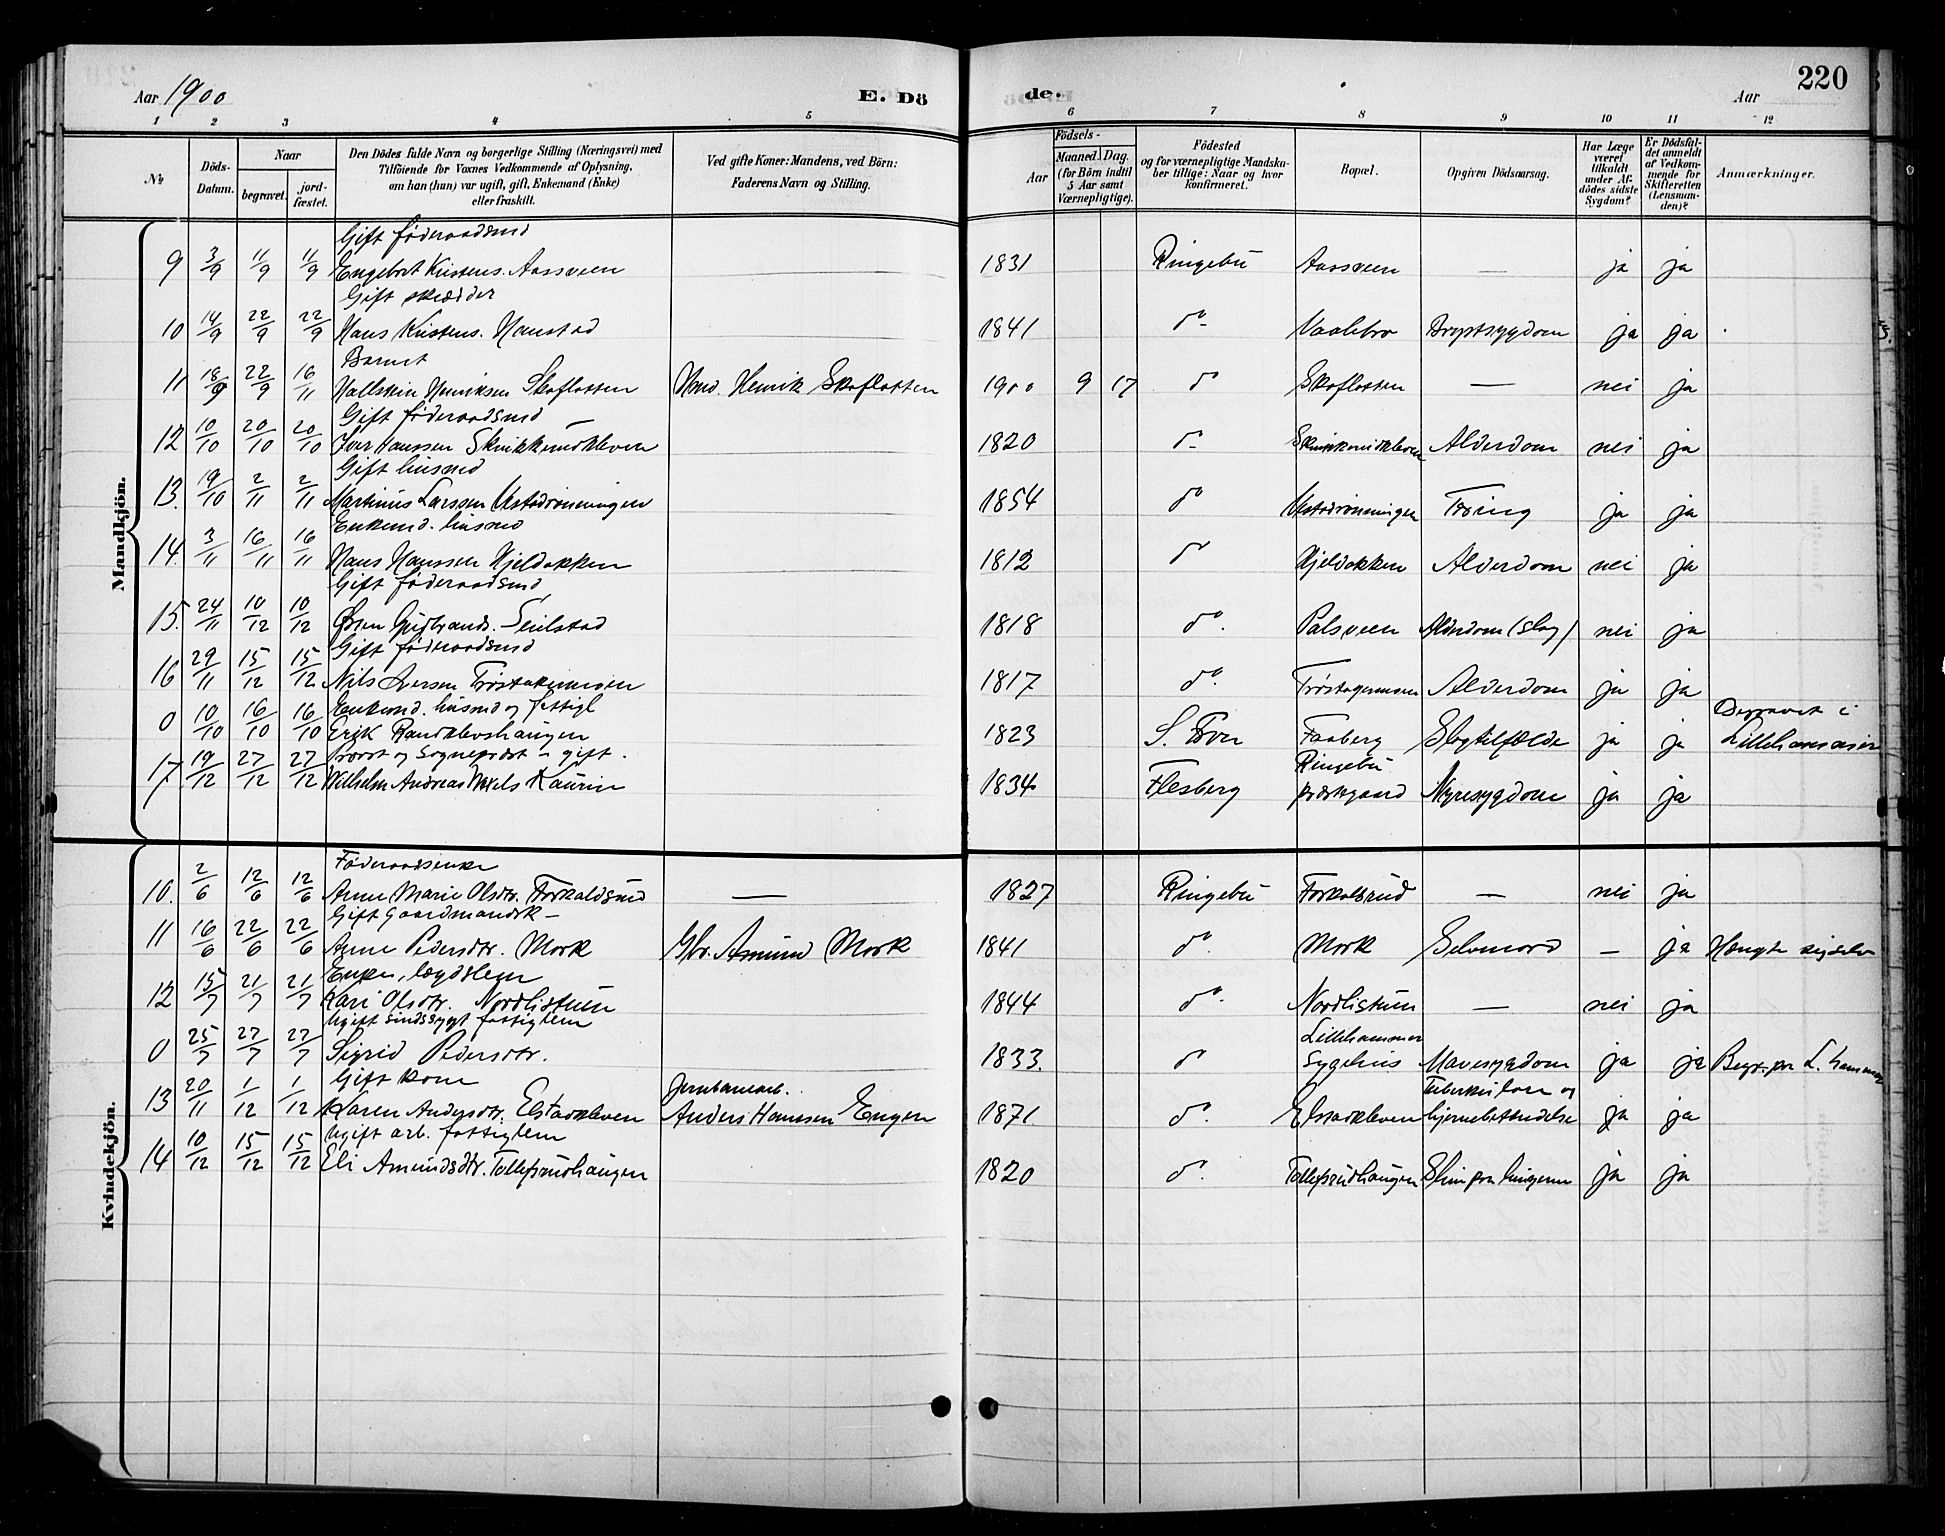 Aar 1900
E. Dö
de.
Aar
220
1 2 3 4 5 6 7 8 9 10 11 12
No
Döds-Datum.
Naar
begravet.
jord-fæstet.
Den Dödes fulde Navn og borgerlige Stilling (Næringsvei) med
Tilföiende for Voxnes Vedkommende af Oplysning,
om han (hun) var ugift, gift, Enkemand (Enke)
eller fraskilt.
Ved gifte Koner: Mandens, ved Börn:
Faderens Navn og Stilling.
Födsels-
Aar
Maaned. Dag.
(for Börn indtil
5 Aar samt
Værnepligtige).
Födested
og for værnepligtige Mandsku-
ber tillige: Naar og hvor
konfirmeret.
Bopæl.
Opgiven Dödsaarsag.
Har Læge
været
tilkaldt
under Af-
dödes sidste
Sygdom?
Er Dödsfal-
det anmeldt
af Vedkom-
mende for
Skifteretten
(Lensman-
den)?
Anmærkninger.
Mandkjön.
Gift föderaadsmd
9 3/9 11/9 11/9 Engebret Kristens. Aassveen 1831 Ringebu Aassveen — ja ja
Gift skrædder
10 14/9 22/9 22/9 Hans Kristens. Hanstad 1841 do Vaalebro Brystsygdom ja ja
Barnet
11 18/9 22/9 16/11 Hallstein Henriksen Skoflotten Henrik Skoflotten 1900 9 17 do Skoflotten — nei ja
Gift föderaadsmd
12 10/10 20/10 20/10 Iver Hanssen 1820 do Alderdom nei ja
Gift husmd
13. 19/10 2/11 2/11 Martinus Larssen Ulstadrönningen 1854 do Ulstadrönningen Tæring ja ja
Enkemd. husmd
14. 3/11 16/11 16/11 Hans Hanssen Kjeldokken 1812 do Kjeldokken Alderdom nei ja
Gift föderaadsmd
15. 24/11 10/12 10/12 Gudbrands. 1818 do. Palsveen Alderdom (slag) nei ja
Gift föderaadsmd
16 29/11 15/12 15/12 Nils Iversen 1817 do. Alderdom ja ja
Enkemd. husmd og fattigl
0 10/10 16/10 16/10 Erik Randklevshaugen 1823 S. Fron Faaberg Slagtilfælde ja ja Begravet i Lillehammer
Provst og Sogneprest – gift.
17. 19/12 27/12 27/12 Wilhelm Andreas Wexels Kaurin 1834 Flesberg Ringebu præstgaard Nyresygdom ja ja
Kvindekjön.
Föderaadsenke
10. 2/6 12/6 12/6 Anne Marie Olsdtr. Forkaldsrud — 1827 Ringebu Forkalsrud — nei ja
Gift gaardmandsk –
11 16/6 22/6 22/6 Anne Pedersdtr. Mork Gbr. Amund Mork 1841 do. Mork Selvmord — ja Hængte sig selv
Enke, lægdslem
12 15/7 21/7 21/7 Kari Olsdtr. Nordlistuen 1844 do. Nordlistuen — nei ja
Ugift sindssygt fattiglem
0 25/7 27/7 27/7 Sigrid Pedersdtr. 1833. do Lillehammer sygehus Mavesygdom ja ja Begr. paa L. hammer
Gift kone
13 20/11 1/12 1/12 Karen Andersdtr. Elstadkleven Jernbanearb. Anders Hanssen Engen 1871 do. Elstadkleven Tuberkulose og hjernebetændelse ja ja
Ugift arb. fattiglem
14 10/12 15/12 15/12 Eli Amundsdtr. Tollefsrudhaugen 1820 do. Tollefsrudhaugen Slim paa lungerne ja ja